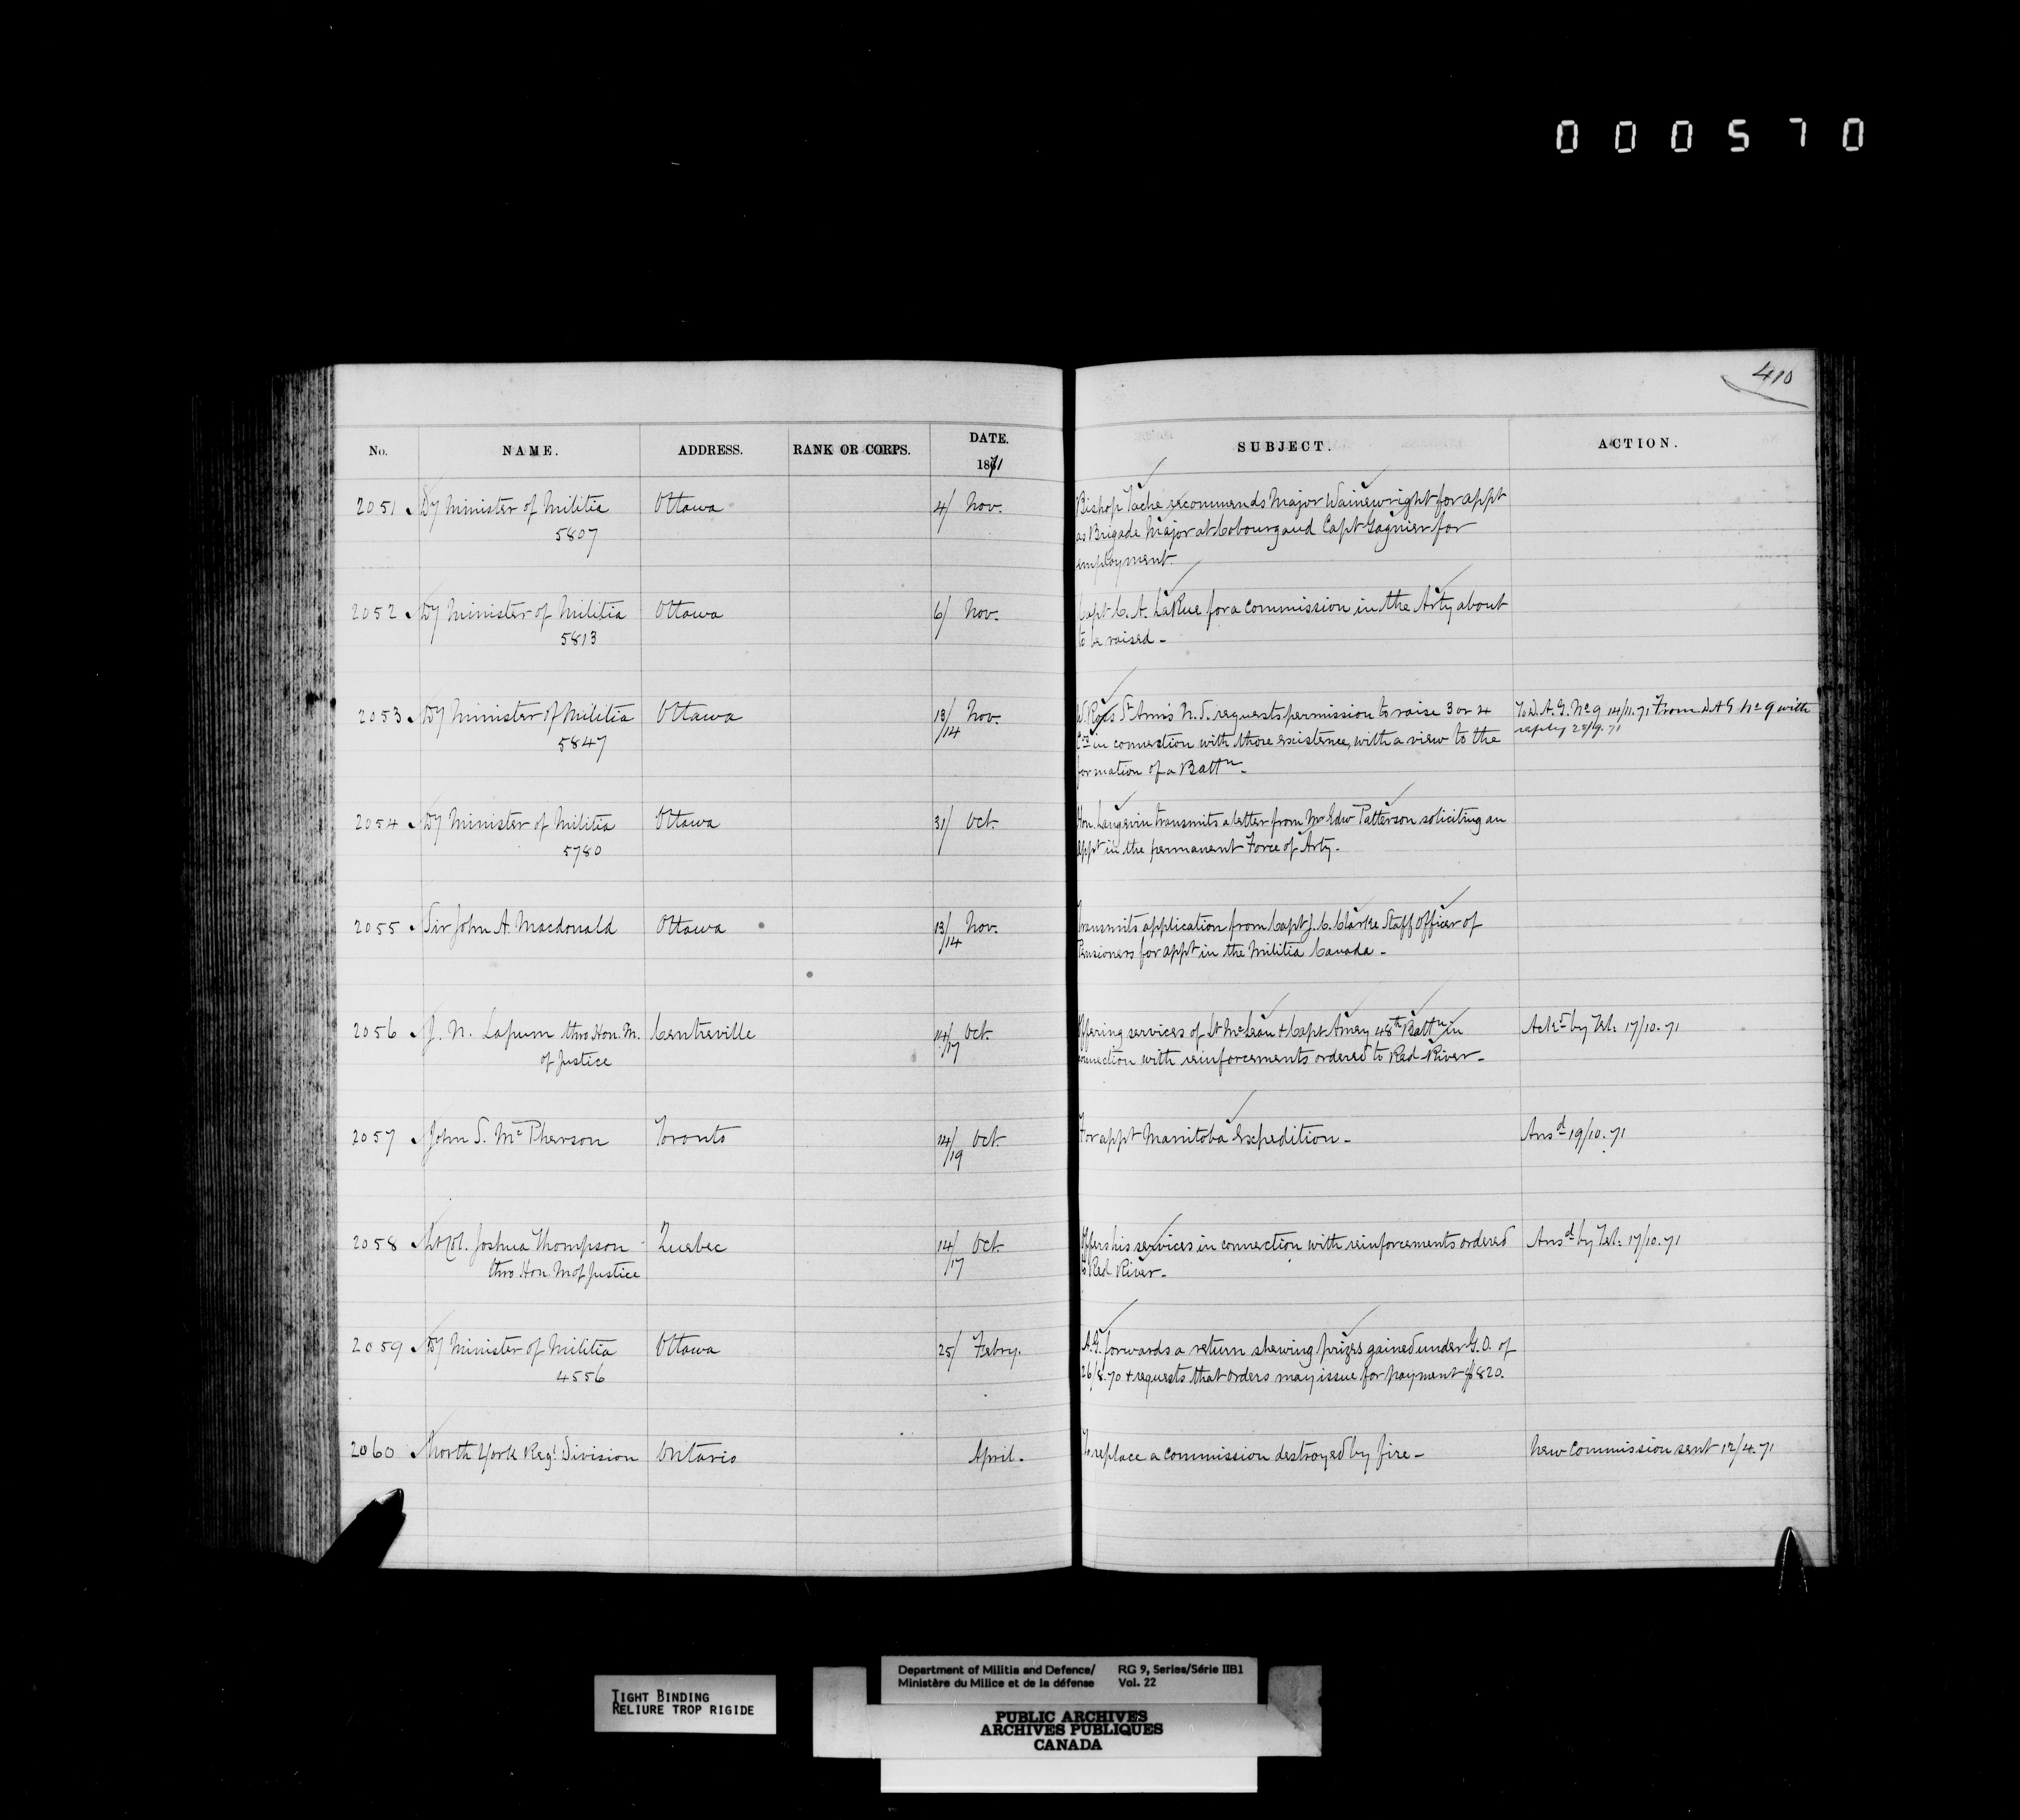 000570
410
No. NAME. ADDRESS. RANK OR CORPS. DATE. 1871 SUBJECT. ACTION.
2051 Dy Minister of Militia Ottawa 4/ Nov. Bishop Tache recommends Major Wainewright for appt
5807 as Brigade Major at Cobourg and Capt Gagnier for
employment.
2052 Dy Minister of Militia Ottawa 6/ Nov. Capt C. A. LaRue for a commission in the Arty about
5813 to be raised -
2053 Dy Minister of Militia Ottawa 13/14 Nov. W. Ross St Ann's N.S. requests permission to raise 3 or 4 To D.A.G. No 9 14/11.71 From D.A.G No 9 with
5847 Cos in connection with those existence, with a view to the reply
formation of a Battn -
2054 Dy Minister of Militia Ottawa 31/ Oct. Hon. Langevin transmits a letter from Mr Edw Patterson soliciting an
5780 appt in the permanent Force of Arty.
2055 Sir John A. Macdonald Ottawa 13/14 Nov. Transmits application from Capt J. C. Clarke Staff Officer of
Pensioners for appt in the Militia Canada -
2056 J. N. Lapum thro. Hon. M. Centreville 14/17 Oct. Offering services of Lt McLean & Capt Amey 48th Battn in Ackd by Tel: 17/10.71
of Justice connection with reinforcements ordered to Red River -
2057 John S. McPherson Toronto 14/19 Oct. For appt Manitoba Expedition - Ansd 19/10.71
2058 Lt Col. Joshua Thompson Quebec 14/17 Oct. Offers his services in connection with reinforcements ordered Ansd by Tel: 17/10.71
thro. Hon. M of Justice to Red River -
2059 Dy Minister of Militia Ottawa 25/ Febry. A.G. forwards a return shewing prizes gained under G.O. of
4556 26/8.70 & requests that orders may issue for payment $820.
2060 North York Regl Division Ontario April. To replace a commission destroyed by fire - New Commission sent 12/4.71
TIGHT BINDING
RELIURE TROP RIGIDE
Department of Militia and Defence/ RG 9, Series/Série IIB1
Ministère du Milice et de la défense Vol. 22
PUBLIC ARCHIVES
ARCHIVES PUBLIQUES
CANADA